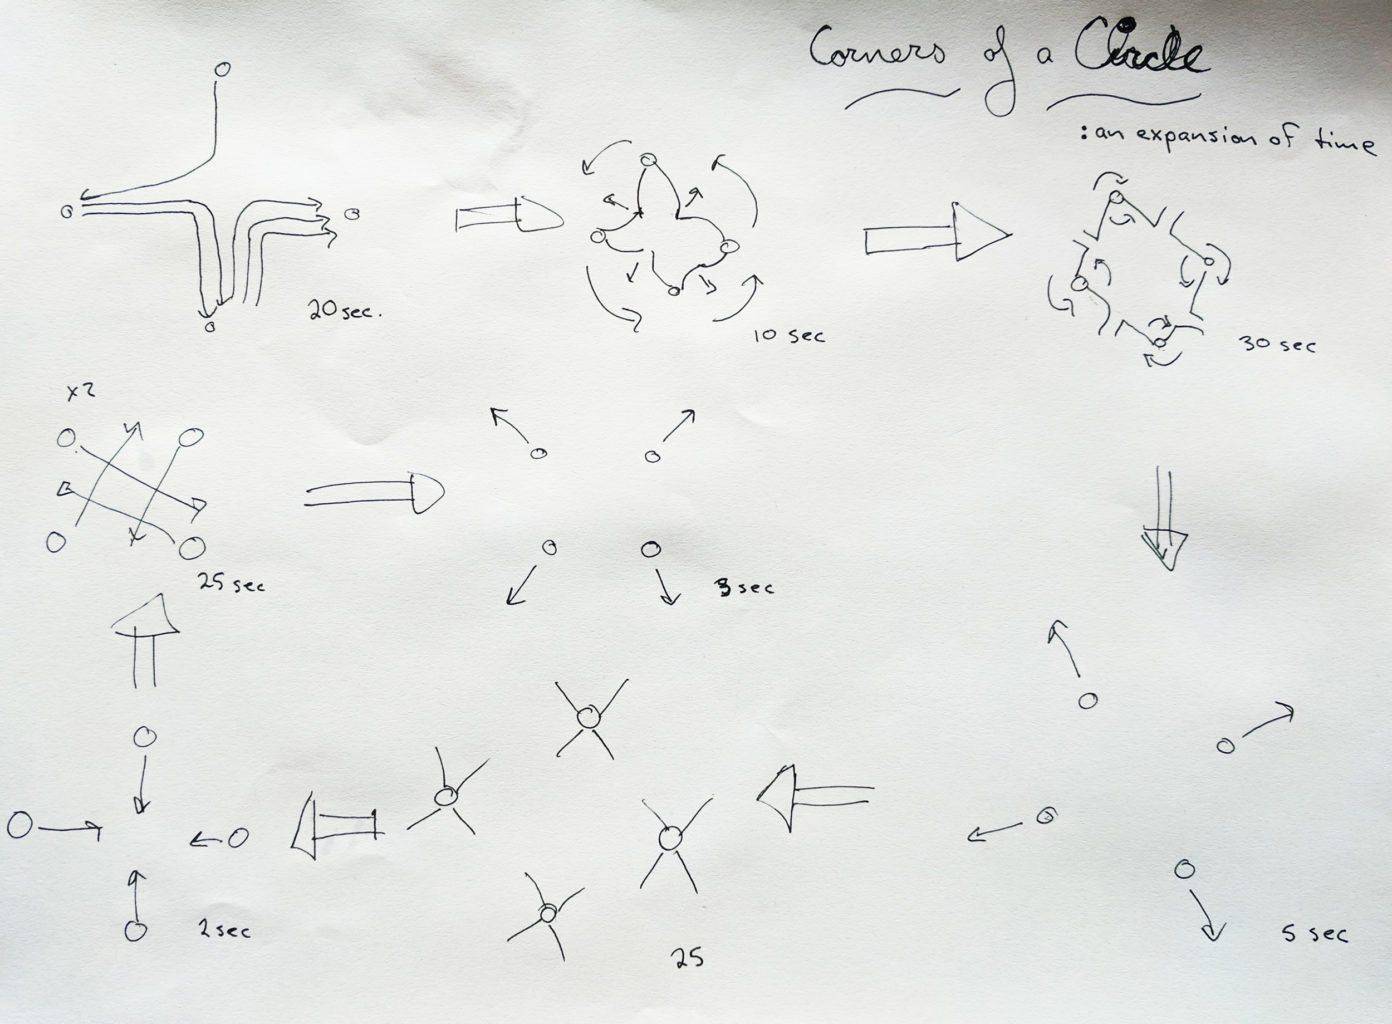 Corners of a Circle
: an expansion of time
20 sec.
10 sec
30 sec
x2
25 sec
3 sec
2 sec
25
5 sec